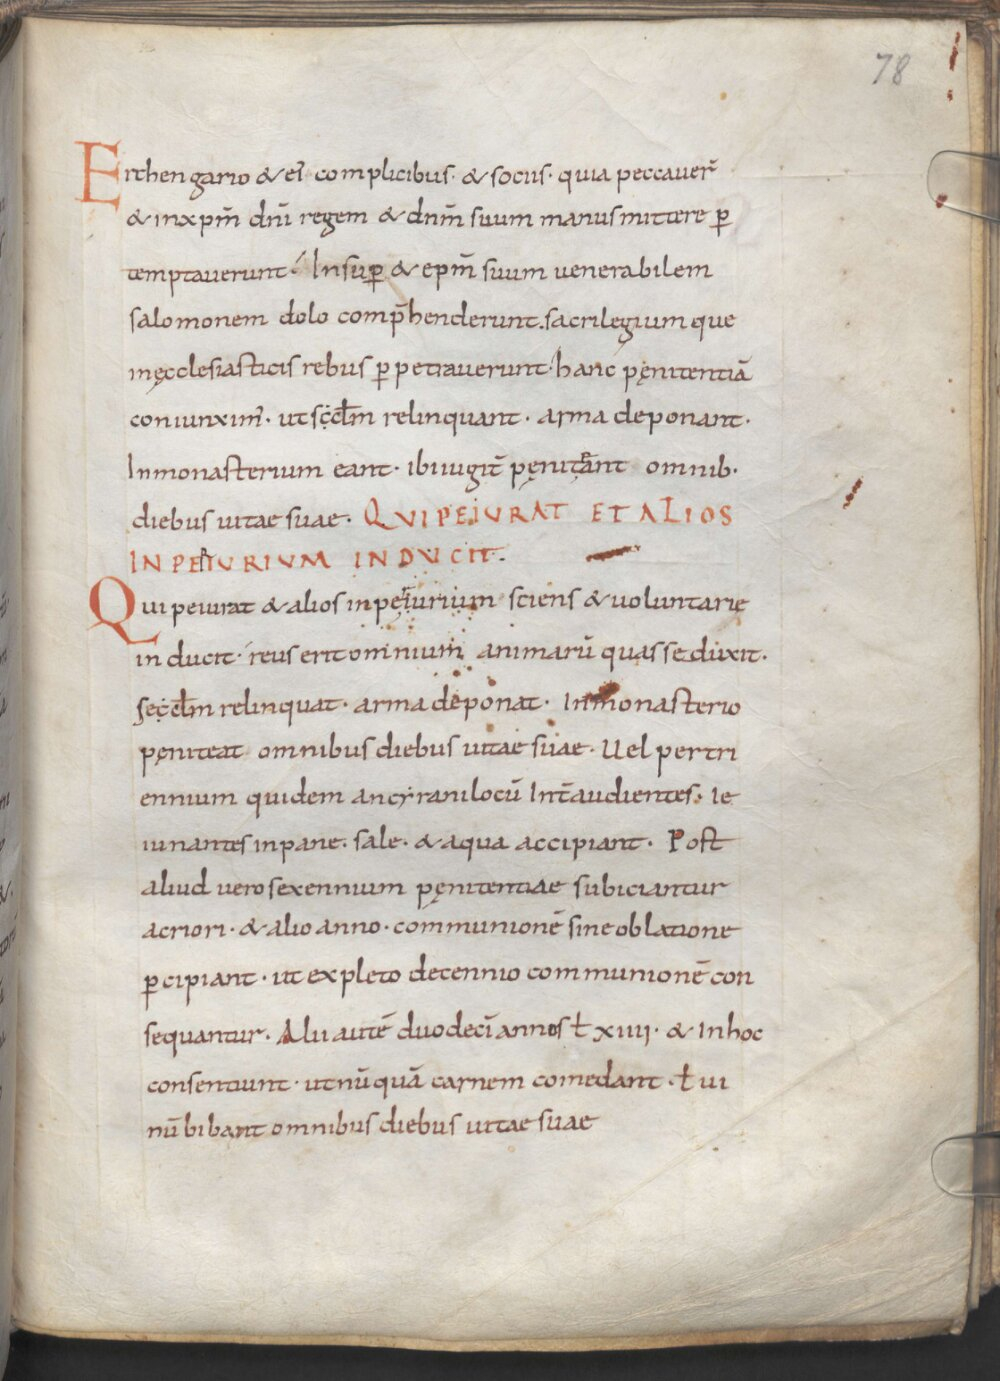 78
Erchengario & ei᷒ complicibus· & sociis· quia peccauer̃
& inxp̄m dn̄i regem & dnm̄ suum manus mittere ꝑ
temptauerunt· Insuꝑ & ep̄m suum uenerabilem
salomonem dolo comp̄henderunt. sacrilegium que
inęcclesiasticis rebus ꝑpetrauerunt· hanc pęnitentiā
coniunxim᷒· ut sęcl̄m relinquant· arma deponant·
Inmonasterium eant· ibi iugit̄ pęniteant omnib·
diebus uitae suae· QUI PEIURAT ET ALIOS
IN PERIURIUM INDUCIT·
Qui peiurat & alios inperiurium sciens & uoluntarie
inducit· reus erit omnium animarū quas seduxit·
sęcl̄m relinquat· arma deponat· Inmonasterio
pęniteat omnibus diebus uitae suae· Uel pertri
ennium quidem ancyrani locū Int̄ audientes· Ie
iunantes inpane· sale· & aqua accipiant· Post
aliud uero sexennium pęnitentiae subiciantur
acriori· & alio anno· communionē sine oblatione
ꝑcipiant· ut expleto decennio communionē con
sequantur· Alii autē duodecī annos ł xiiij· & Inhoc
consentiunt· ut nūquā carnem comedant· ł ui
nū bibant omnibus diebus uitae suae